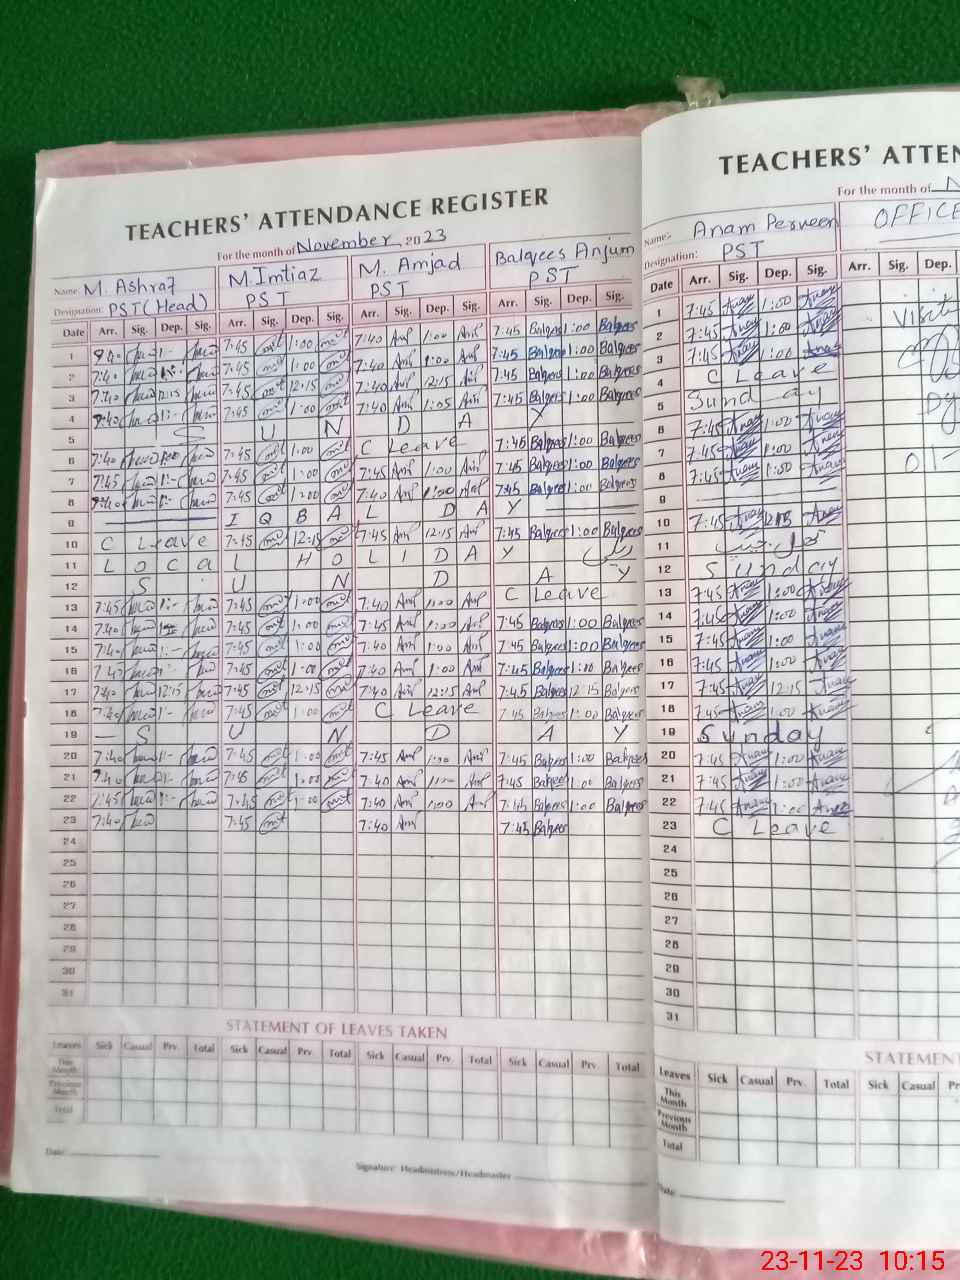 TEACHERS' ATTENDANCE REGISTER
For the month of November 2023
Name: M. Ashraf M. Imtiaz M. Amjad Balqees Anjum
Designation: PST (Head) PST PST PST
Date Arr. Sig. Dep. Sig. Arr. Sig. Dep. Sig. Arr. Sig. Dep. Sig. Arr. Sig. Dep. Sig.
1 7:45 1:00 7:40 1:00 7:45 Balqees 1:00 Balqees
2 7:40 7:45 1:00 7:40 1:00 7:45 Balqees 1:00 Balqees
3 7:40 12:15 7:45 12:15 7:40 12:15 7:45 Balqees 1:00 Balqees
4 7:40 1:- 7:45 1:00 7:40 1:05 7:45 Balqees 1:00 Balqees
5 S U N D A Y
6 7:40 7:45 1:00 C Leave 7:45 Balqees 1:00 Balqees
7 7:45 1:- 7:45 1:00 7:45 1:00 7:45 Balqees 1:00 Balqees
8 7:40 1:- 7:45 1:00 7:40 1:00 7:45 Balqees 1:00 Balqees
9 I Q B A L D A Y
10 C Leave 7:45 12:15 7:45 12:15 7:45 Balqees 1:00 Balqees
11 L o c a L H O L I D A Y
12 S U N D A Y
13 7:45 1:- 7:45 1:00 7:40 1:00 C Leave
14 7:40 7:45 1:00 7:45 1:00 7:45 Balqees 1:00 Balqees
15 7:40 1:- 7:45 1:00 7:45 1:00 7:45 Balqees 1:00 Balqees
16 7:45 1:- 7:45 1:00 7:40 1:00 7:45 Balqees 1:00 Balqees
17 7:40 12:15 7:45 12:15 7:40 12:15 7:45 Balqees 12:15 Balqees
18 7:40 1:- 7:45 1:00 C Leave 7:45 Balqees 1:00 Balqees
19 S U N D A Y
20 7:40 1:- 7:45 1:00 7:45 1:00 7:45 Balqees 1:00 Balqees
21 7:40 1:- 7:45 1:00 7:40 1:00 7:45 Balqees 1:00 Balqees
22 7:45 1:- 7:45 1:00 7:40 1:00 7:45 Balqees 1:00 Balqees
23 7:40 7:45 7:40 7:45 Balqees
24
25
26
27
28
29
30
31
STATEMENT OF LEAVES TAKEN
Leaves Sick Casual Prv. Total Sick Casual Prv. Total Sick Casual Prv. Total Sick Casual Prv. Total
This Month
Previous Month
Total
Date:
Signature Headmistress/Headmaster
TEACHERS' ATTEN
For the month of N
Name:- Anam Perveen OFFICE
Designation: PST
Date Arr. Sig. Dep. Sig. Arr. Sig. Dep.
1 7:45 Anam 1:00 Anam
2 7:45 Anam 1:00 Anam Visit
3 7:45 Anam 1:00 Anam
4 C Leave
5 Sunday
6 7:45 Anam 1:00 Anam
7 7:45 Anam 1:00 Anam
8 7:45 Anam 1:00 Anam
9
10 7:45 Anam 12:15 Anam
11
12 Sunday
13 7:45 Anam 1:00 Anam
14 7:45 Anam 1:00 Anam
15 7:45 Anam 1:00 Anam
16 7:45 Anam 1:00 Anam
17 7:45 Anam 12:15 Anam
18 7:45 Anam 1:00 Anam
19 Sunday
20 7:45 Anam 1:00 Anam
21 7:45 Anam 1:00 Anam
22 7:45 Anam 1:00 Anam
23 C Leave
24
25
26
27
28
29
30
31
STATEMENT
Leaves Sick Casual Prv. Total Sick Casual Pr
This Month
Previous Month
Total
Date
23-11-23 10:15